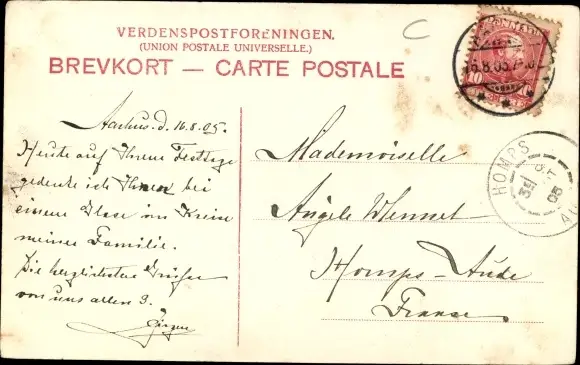 VERDENSPOSTFORENINGEN.
(UNION POSTALE UNIVERSELLE.)
BREVKORT — CARTE POSTALE
C
Aarhus d. 16.8.05.
Heute auf Ihrem Festtage
gedenke ich Ihnen bei
einem Glase im Kreise
meiner Familie.
Die herzlichsten Grüsse
von uns allen 3.
Jürgen
Mademoiselle
Angèle
Homps-Aude
France
16.8.05
HOMPS
05